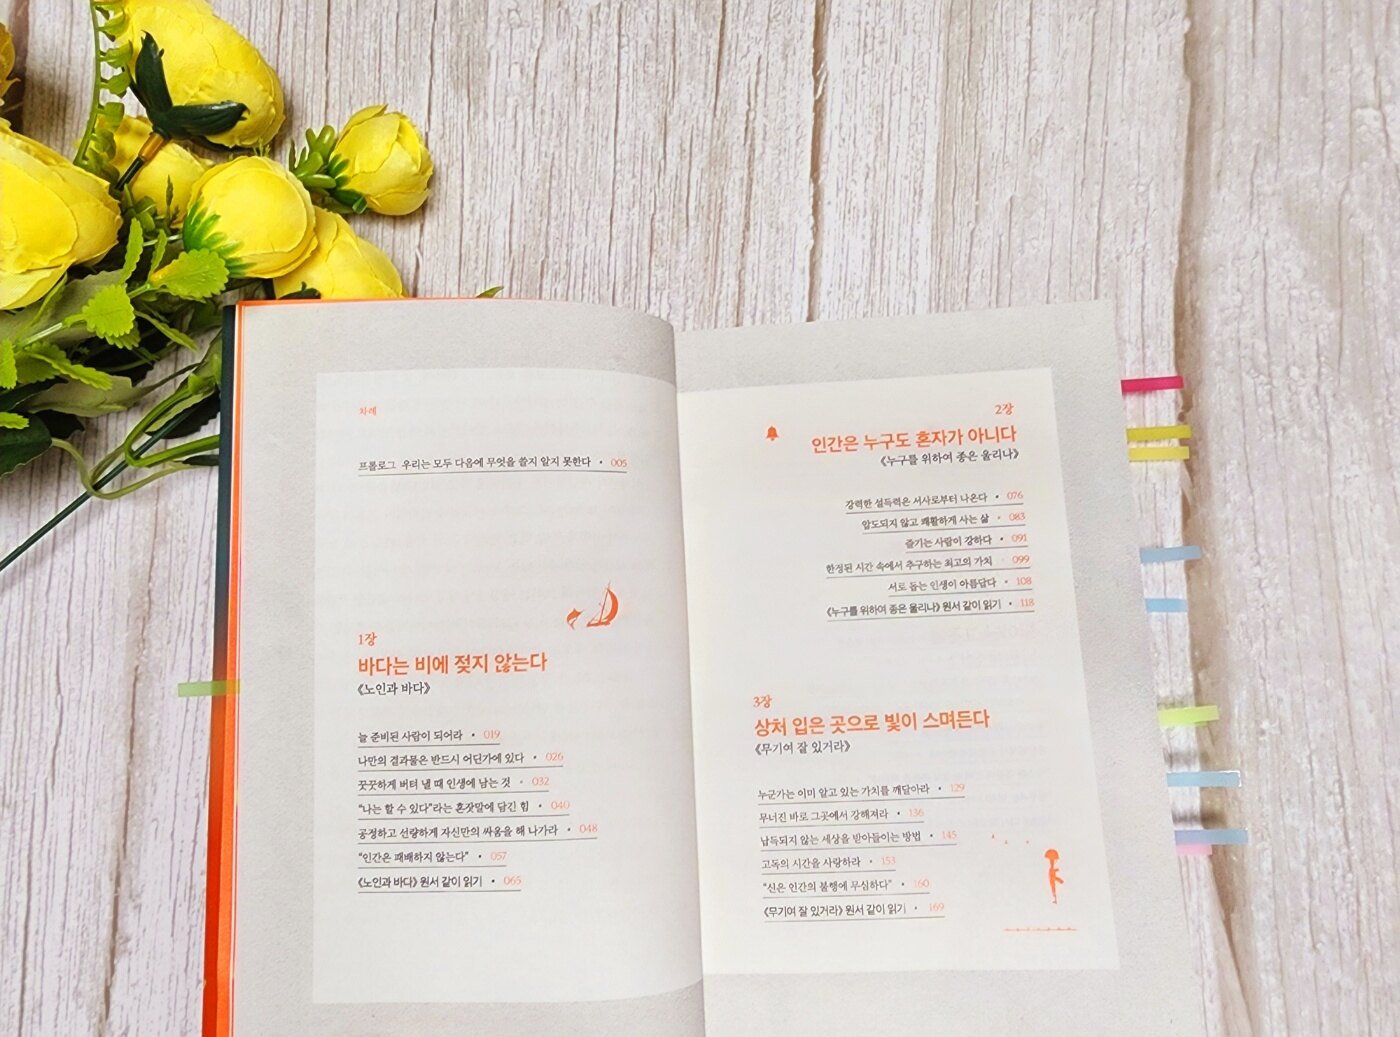 차례
프롤로그 우리는 모두 다음에 무엇을 쓸지 알지 못한다 • 005
1장
바다는 비에 젖지 않는다
《노인과 바다》
늘 준비된 사람이 되어라 • 019
나만의 결과물은 반드시 어딘가에 있다 • 026
꿋꿋하게 버텨 낼 때 인생에 남는 것 • 032
“나는 할 수 있다”라는 혼잣말에 담긴 힘 • 040
공정하고 선량하게 자신만의 싸움을 해 나가라 • 048
“인간은 패배하지 않는다” • 057
《노인과 바다》 원서 같이 읽기 • 065
2장
인간은 누구도 혼자가 아니다
《누구를 위하여 종은 울리나》
강력한 설득력은 서사로부터 나온다 • 076
압도되지 않고 쾌활하게 사는 삶 • 083
즐기는 사람이 강하다 • 091
한정된 시간 속에서 추구하는 최고의 가치 • 099
서로 돕는 인생이 아름답다 • 108
《누구를 위하여 종은 울리나》 원서 같이 읽기 • 118
3장
상처 입은 곳으로 빛이 스며든다
《무기여 잘 있거라》
누군가는 이미 알고 있는 가치를 깨달아라 • 129
무너진 바로 그곳에서 강해져라 • 136
납득되지 않는 세상을 받아들이는 방법 • 145
고독의 시간을 사랑하라 • 153
“신은 인간의 불행에 무심하다” • 160
《무기여 잘 있거라》 원서 같이 읽기 • 169